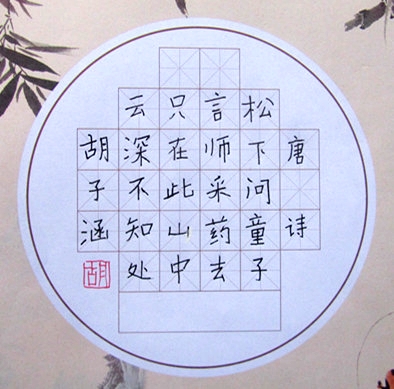 唐诗
松下问童子
言师采药去
只在此山中
云深不知处
胡子涵
胡